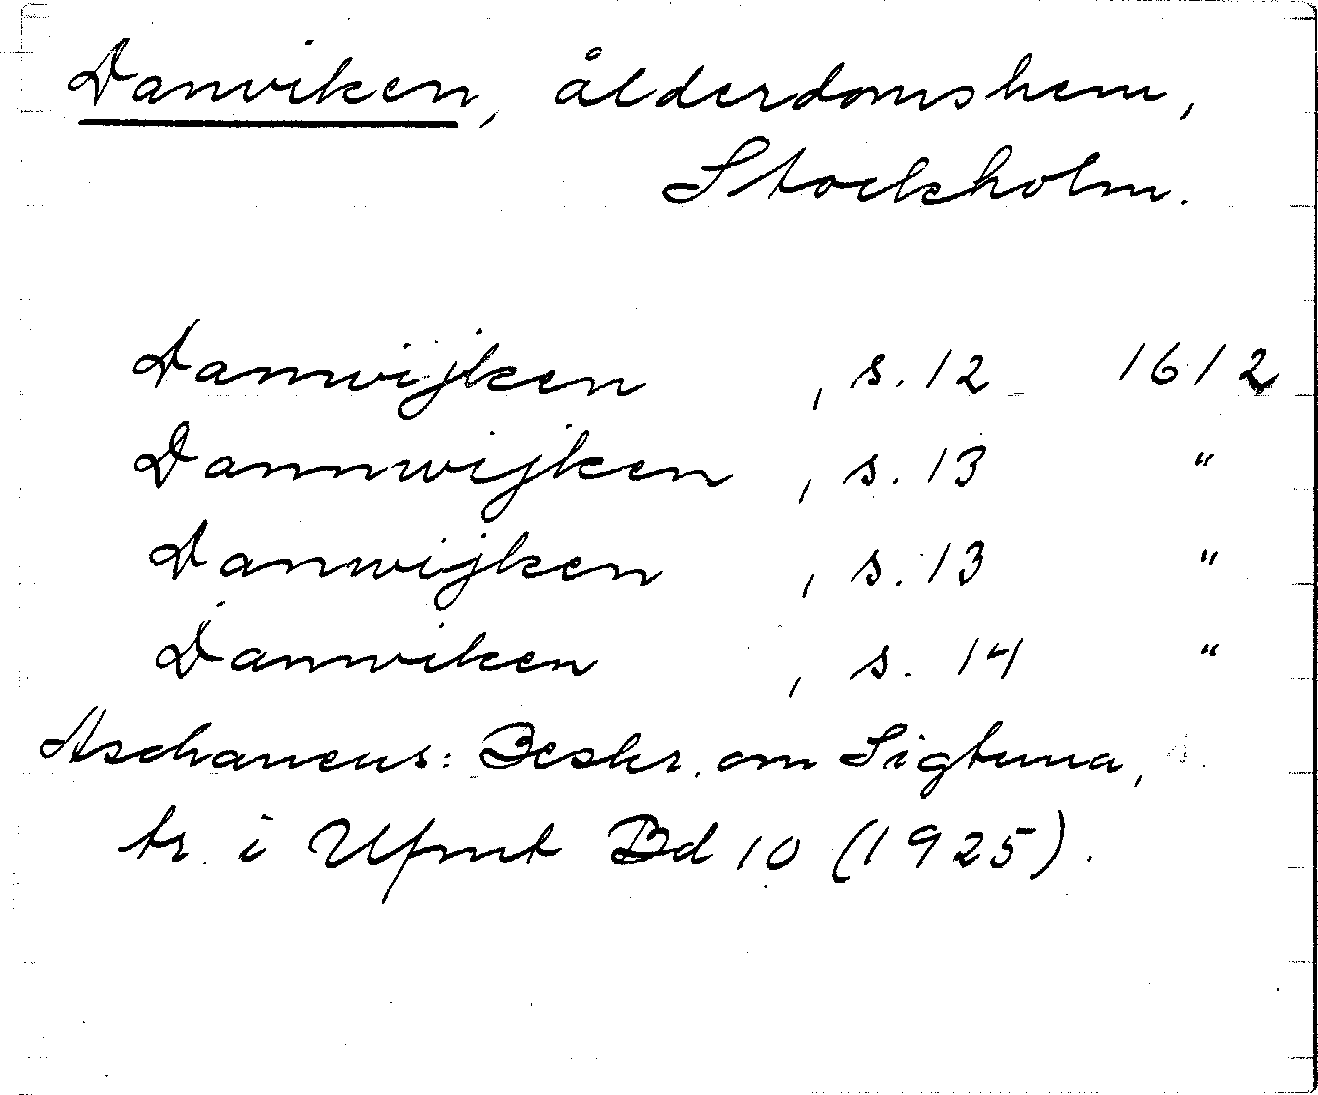 Danviken, ålderdomshem,
Stockholm.
Danwijken, s. 12 1612
Dannwijken, s. 13 "
Danwijken, s. 13 "
Danwiken, s. 14 "
Aschaneus: Beskr. om Sigtuna,
tr. i Ufmt Bd 10 (1925).